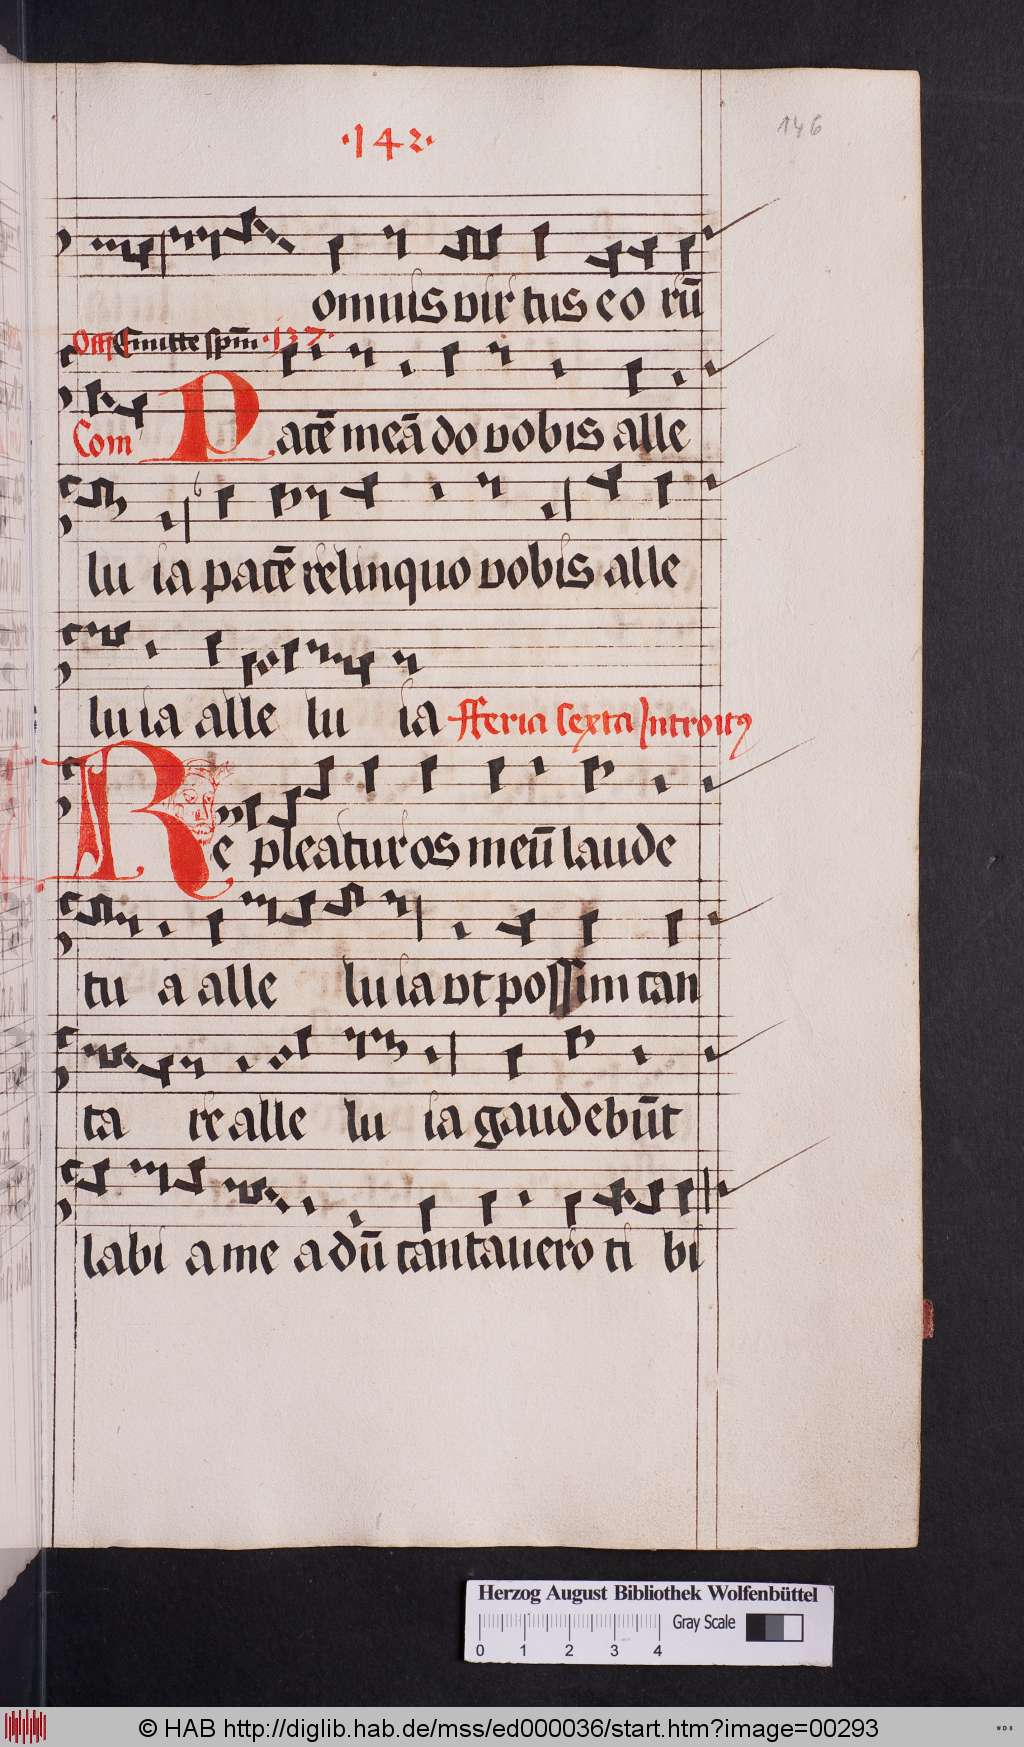 ·142·
146
omnis vir tus eo rū
Off Emitte spm̄ ·137·
Com Pacē meā do vobis alle
lu ia pacē relinquo vobis alle
lu ia alle lu ia fferia sexta Introitꝰ
Re pleatur os meū laude
tu a alle lu ia vt possim can
ta re alle lu ia gaudebūt
labi a me a dū cantauero ti bi
Herzog August Bibliothek Wolfenbüttel
Gray Scale
0 1 2 3 4
© HAB http://diglib.hab.de/mss/ed000036/start.htm?image=00293